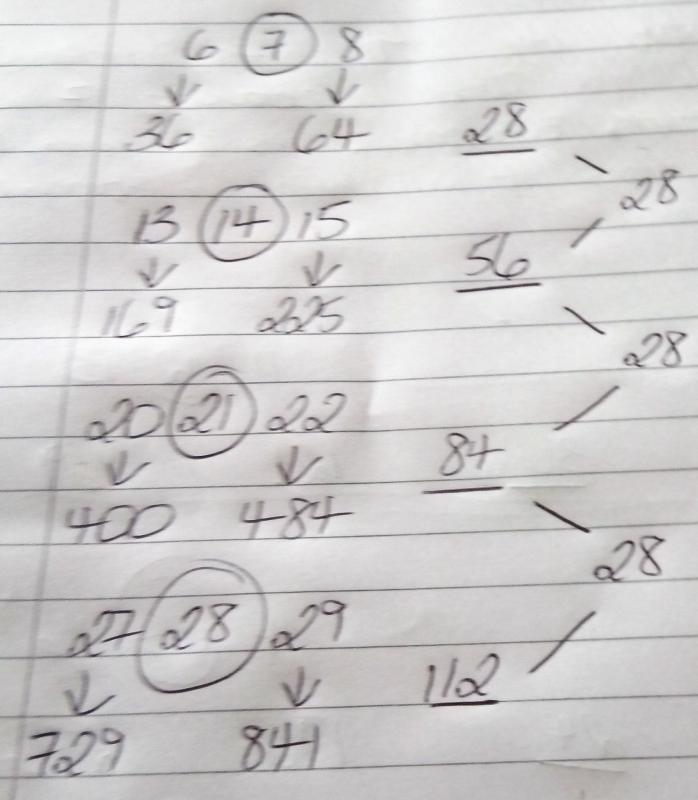 6 7 8
36 64 28
28
13 14 15
56
169 225
28
20 21 22
84
400 484
28
27 28 29
112
729 841